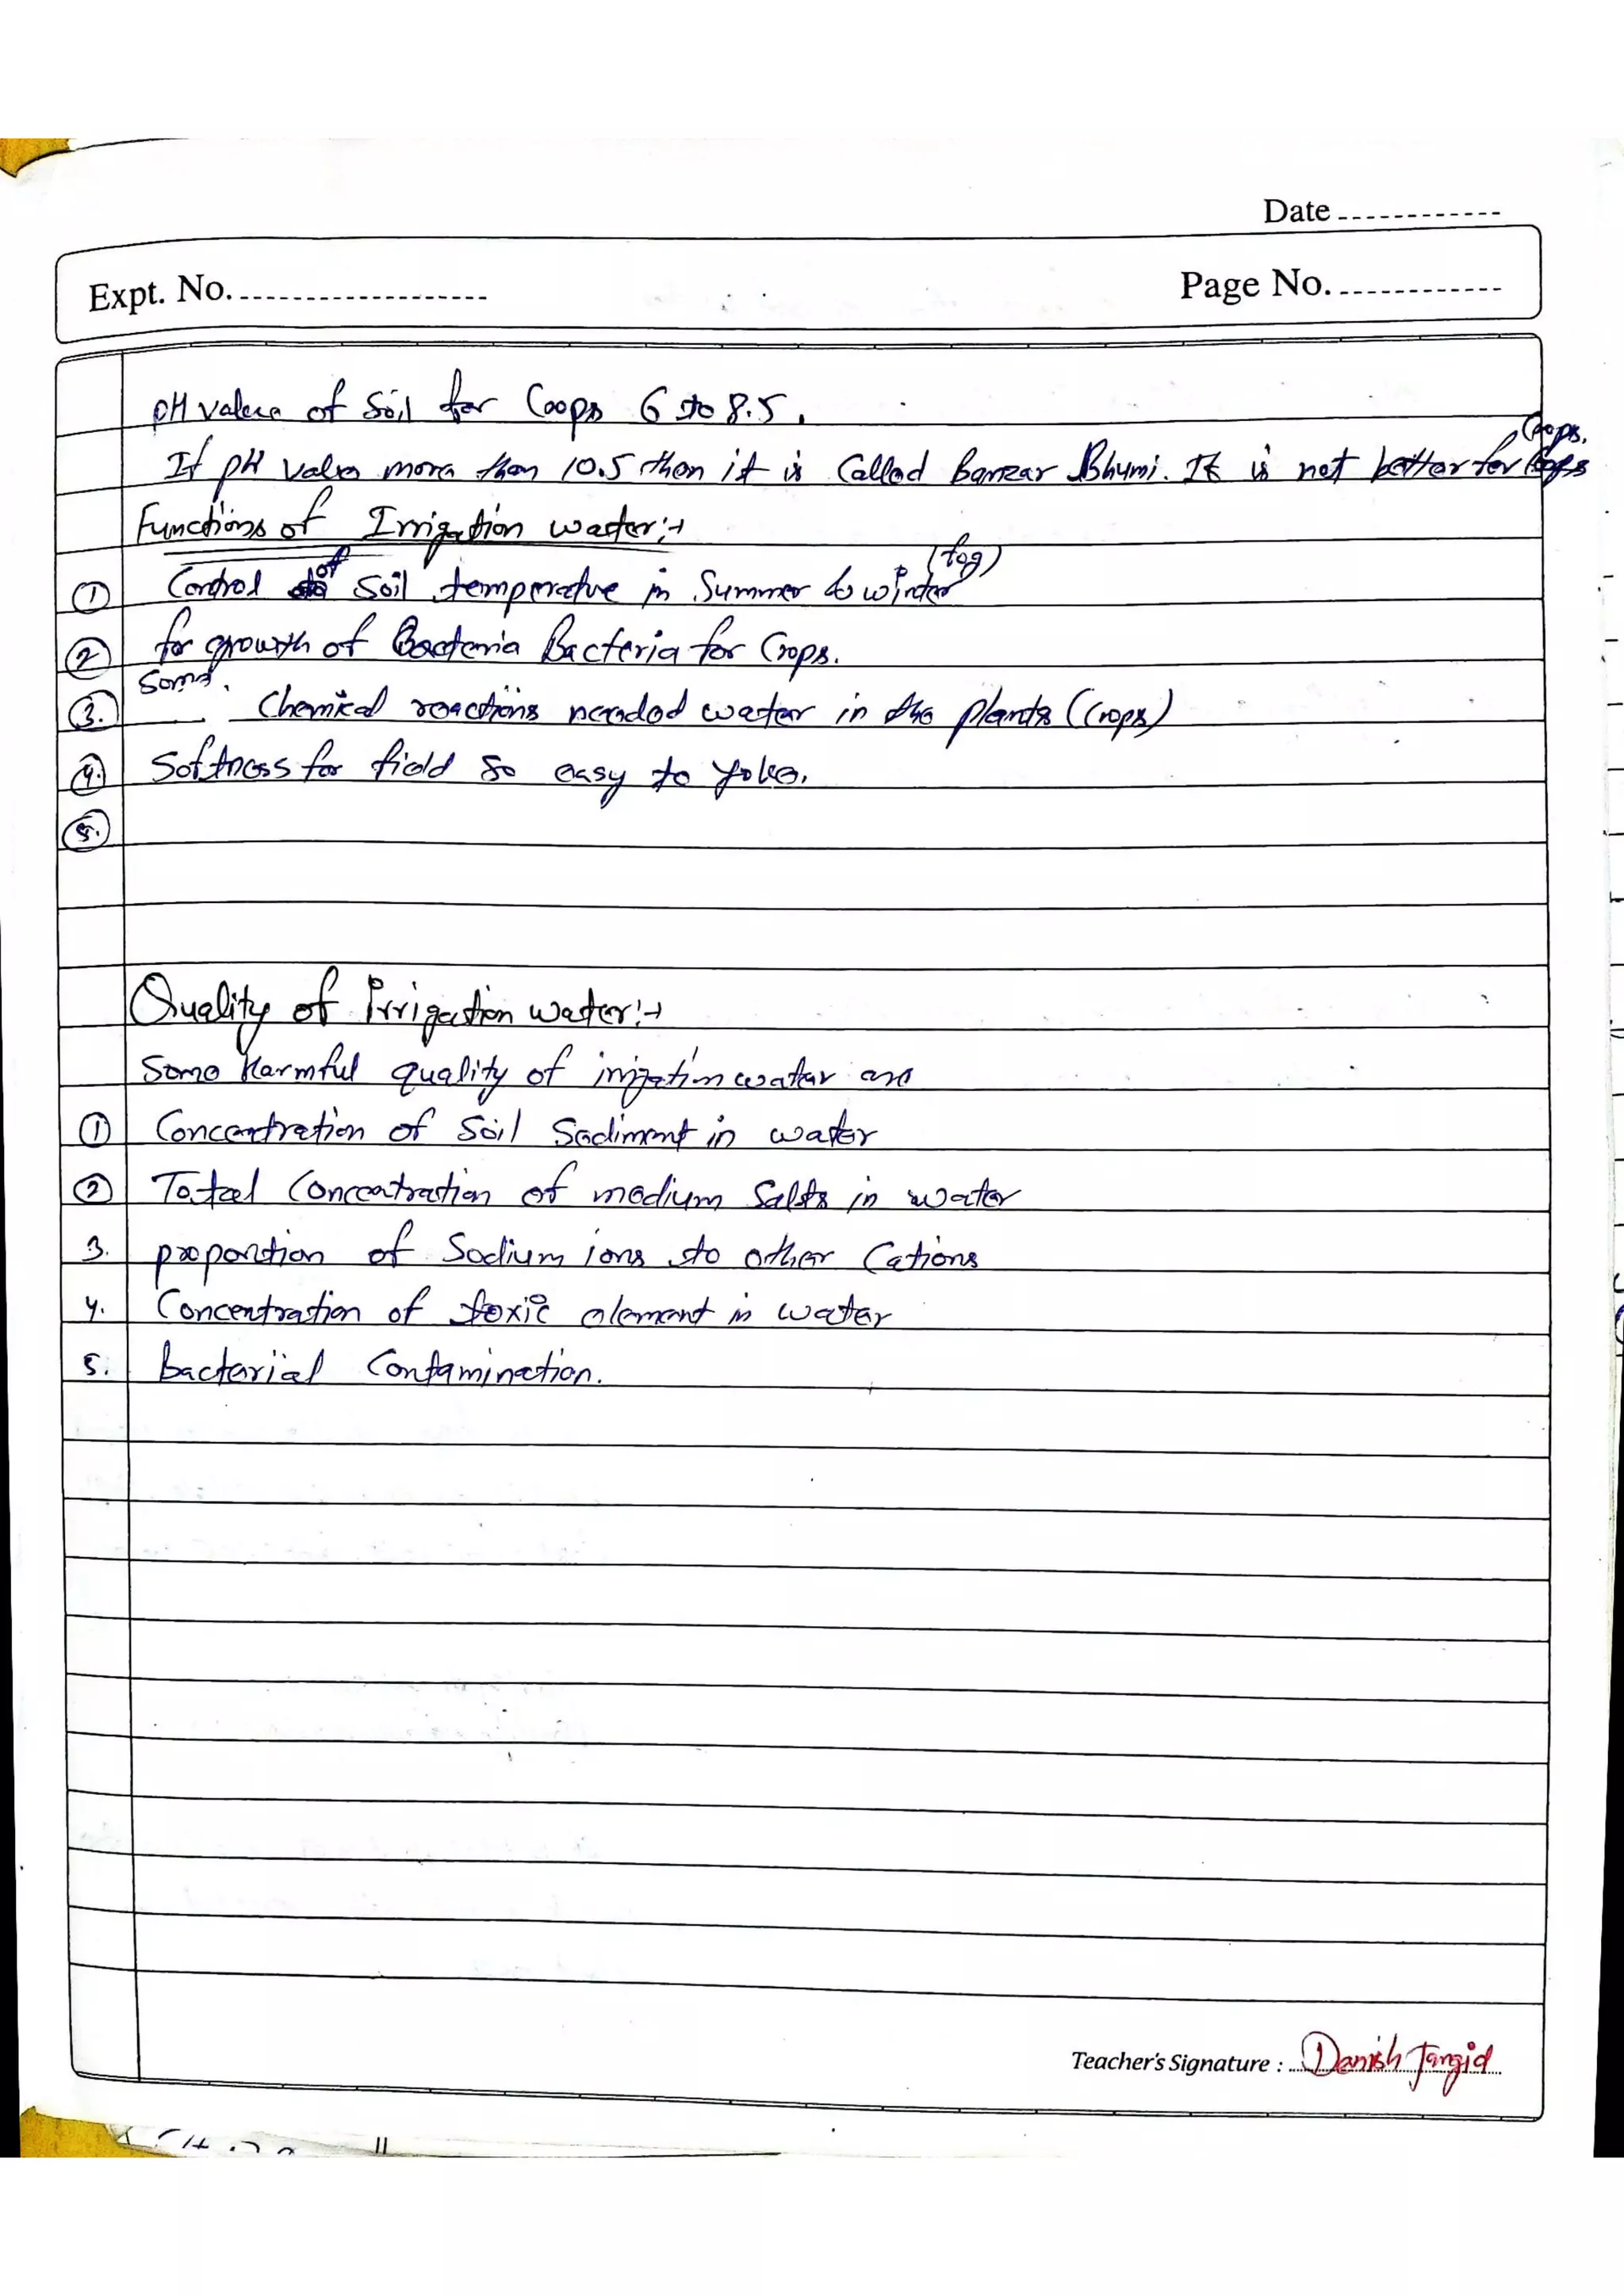 Date
Expt. No.
Page No.
pH value of Soil for Crops 6 to 8.5.
If pH value more than 10.5 then it is Called Banzar Bhumi. It is not better for Crops.
Functions of Irrigation water:→
① Control of Soil temperature in Summer & winter (fog)
② for growth of Bacteria Bacteria for Crops.
③. Some Chemical reactions needed water in the plants (Crops)
④. Softness for field so easy to yoke.
⑤.
Quality of Irrigation water:→
Some Harmful quality of irrigation water are
① Concentration of Soil Sediment in water
② Total Concentration of medium Salts in water
3. proportion of Sodium ions to other Cations
4. Concentration of toxic element in water
5. bacterial Contamination.
Teacher's Signature : Danish Jangid